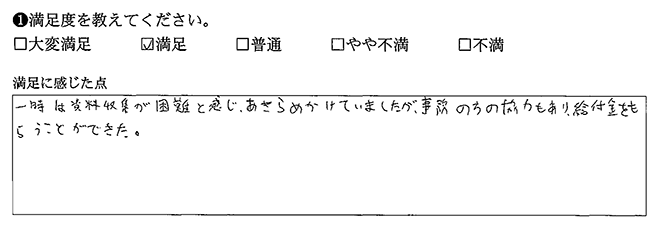 ❶満足度を教えてください。
☐大変満足 ☑満足 ☐普通 ☐やや不満 ☐不満
満足に感じた点
一時は資料収集が困難と感じ、あきらめかけていましたが、事務の方の協力もあり、給付金をも
らうことができた。